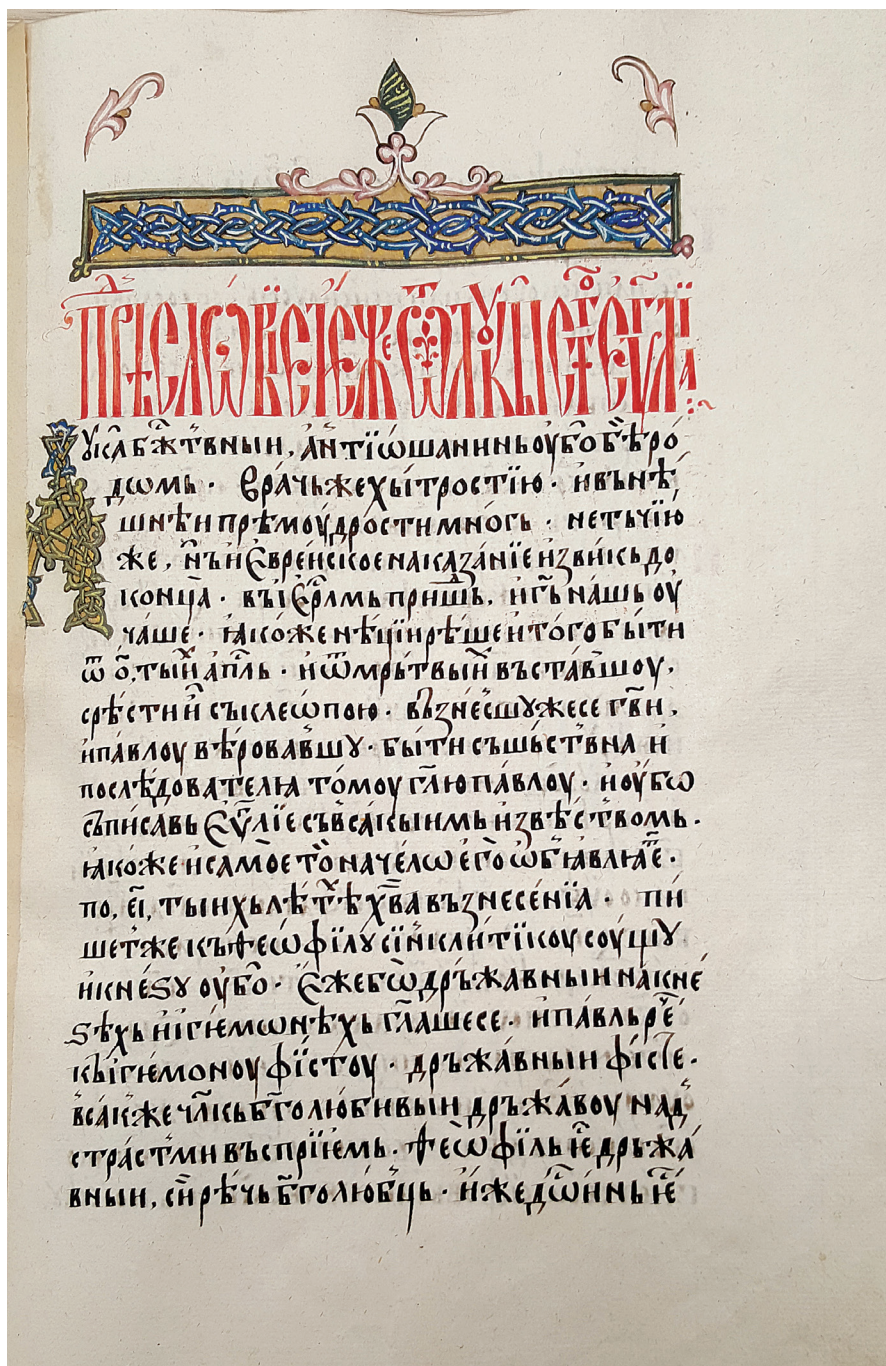 прѣⷣсловїе іеже ѿ лꙋкы ст҃го еѵⷢ҇лїа
Лꙋка бж҃ⷭтвныи, антїѡшанинь оубо бѣ родомь
дѡмь · врачь же хытростїю · и вънѣ
шнѣи прѣмоудрости многь · не тьчїю
же, нь и еврейское наказанїе извикь до
конца · въ іерⷭлмь пришⷣь, и гь҃ нашь оу
чаше · ꙗкоже нѣцїи рѣше и того быти
ѿ ѻ҃, тыⷯ и апⷭ҇ль · и ѿ мрьтвыиⷯ въставшоу,
срѣсти и съ клеѡпою · възнесшу же се гв҃и,
и павлоу вѣровавшу · быти сьшьствна и
послѣдователꙗ томоу гл҃ю павлоу · и оубѡ
сьписавь еѵⷢ҇лїе съ всакыимь извѣствомь ·
ꙗкоже и само е то начелѡ его ѡбꙗвлꙗеⷮ ·
по, еі҃, тыихь лѣтѣⷯ хв҃а възнесенїа · пи
шет же къ ѳеѡфїлꙋ сїнклитїкоу соущꙋ
и кнеѕꙋ оубо · Еже бѡ дрьжавныи на кне
ѕѣхь и ігіемѡнѣхь гл҃аше се · и павль реⷱ҇
къ ігіемоноу фїстоу · дрьжавныи фісте ·
всак же чл҃кь бг҃олюбивыи дрьжавоу над
страстми въспрїіемь · ѳеѡфїль іеⷭ҇ дрьжа
вныи, сирѣчь бг҃олюбць · иже дѡинь іеⷭ҇